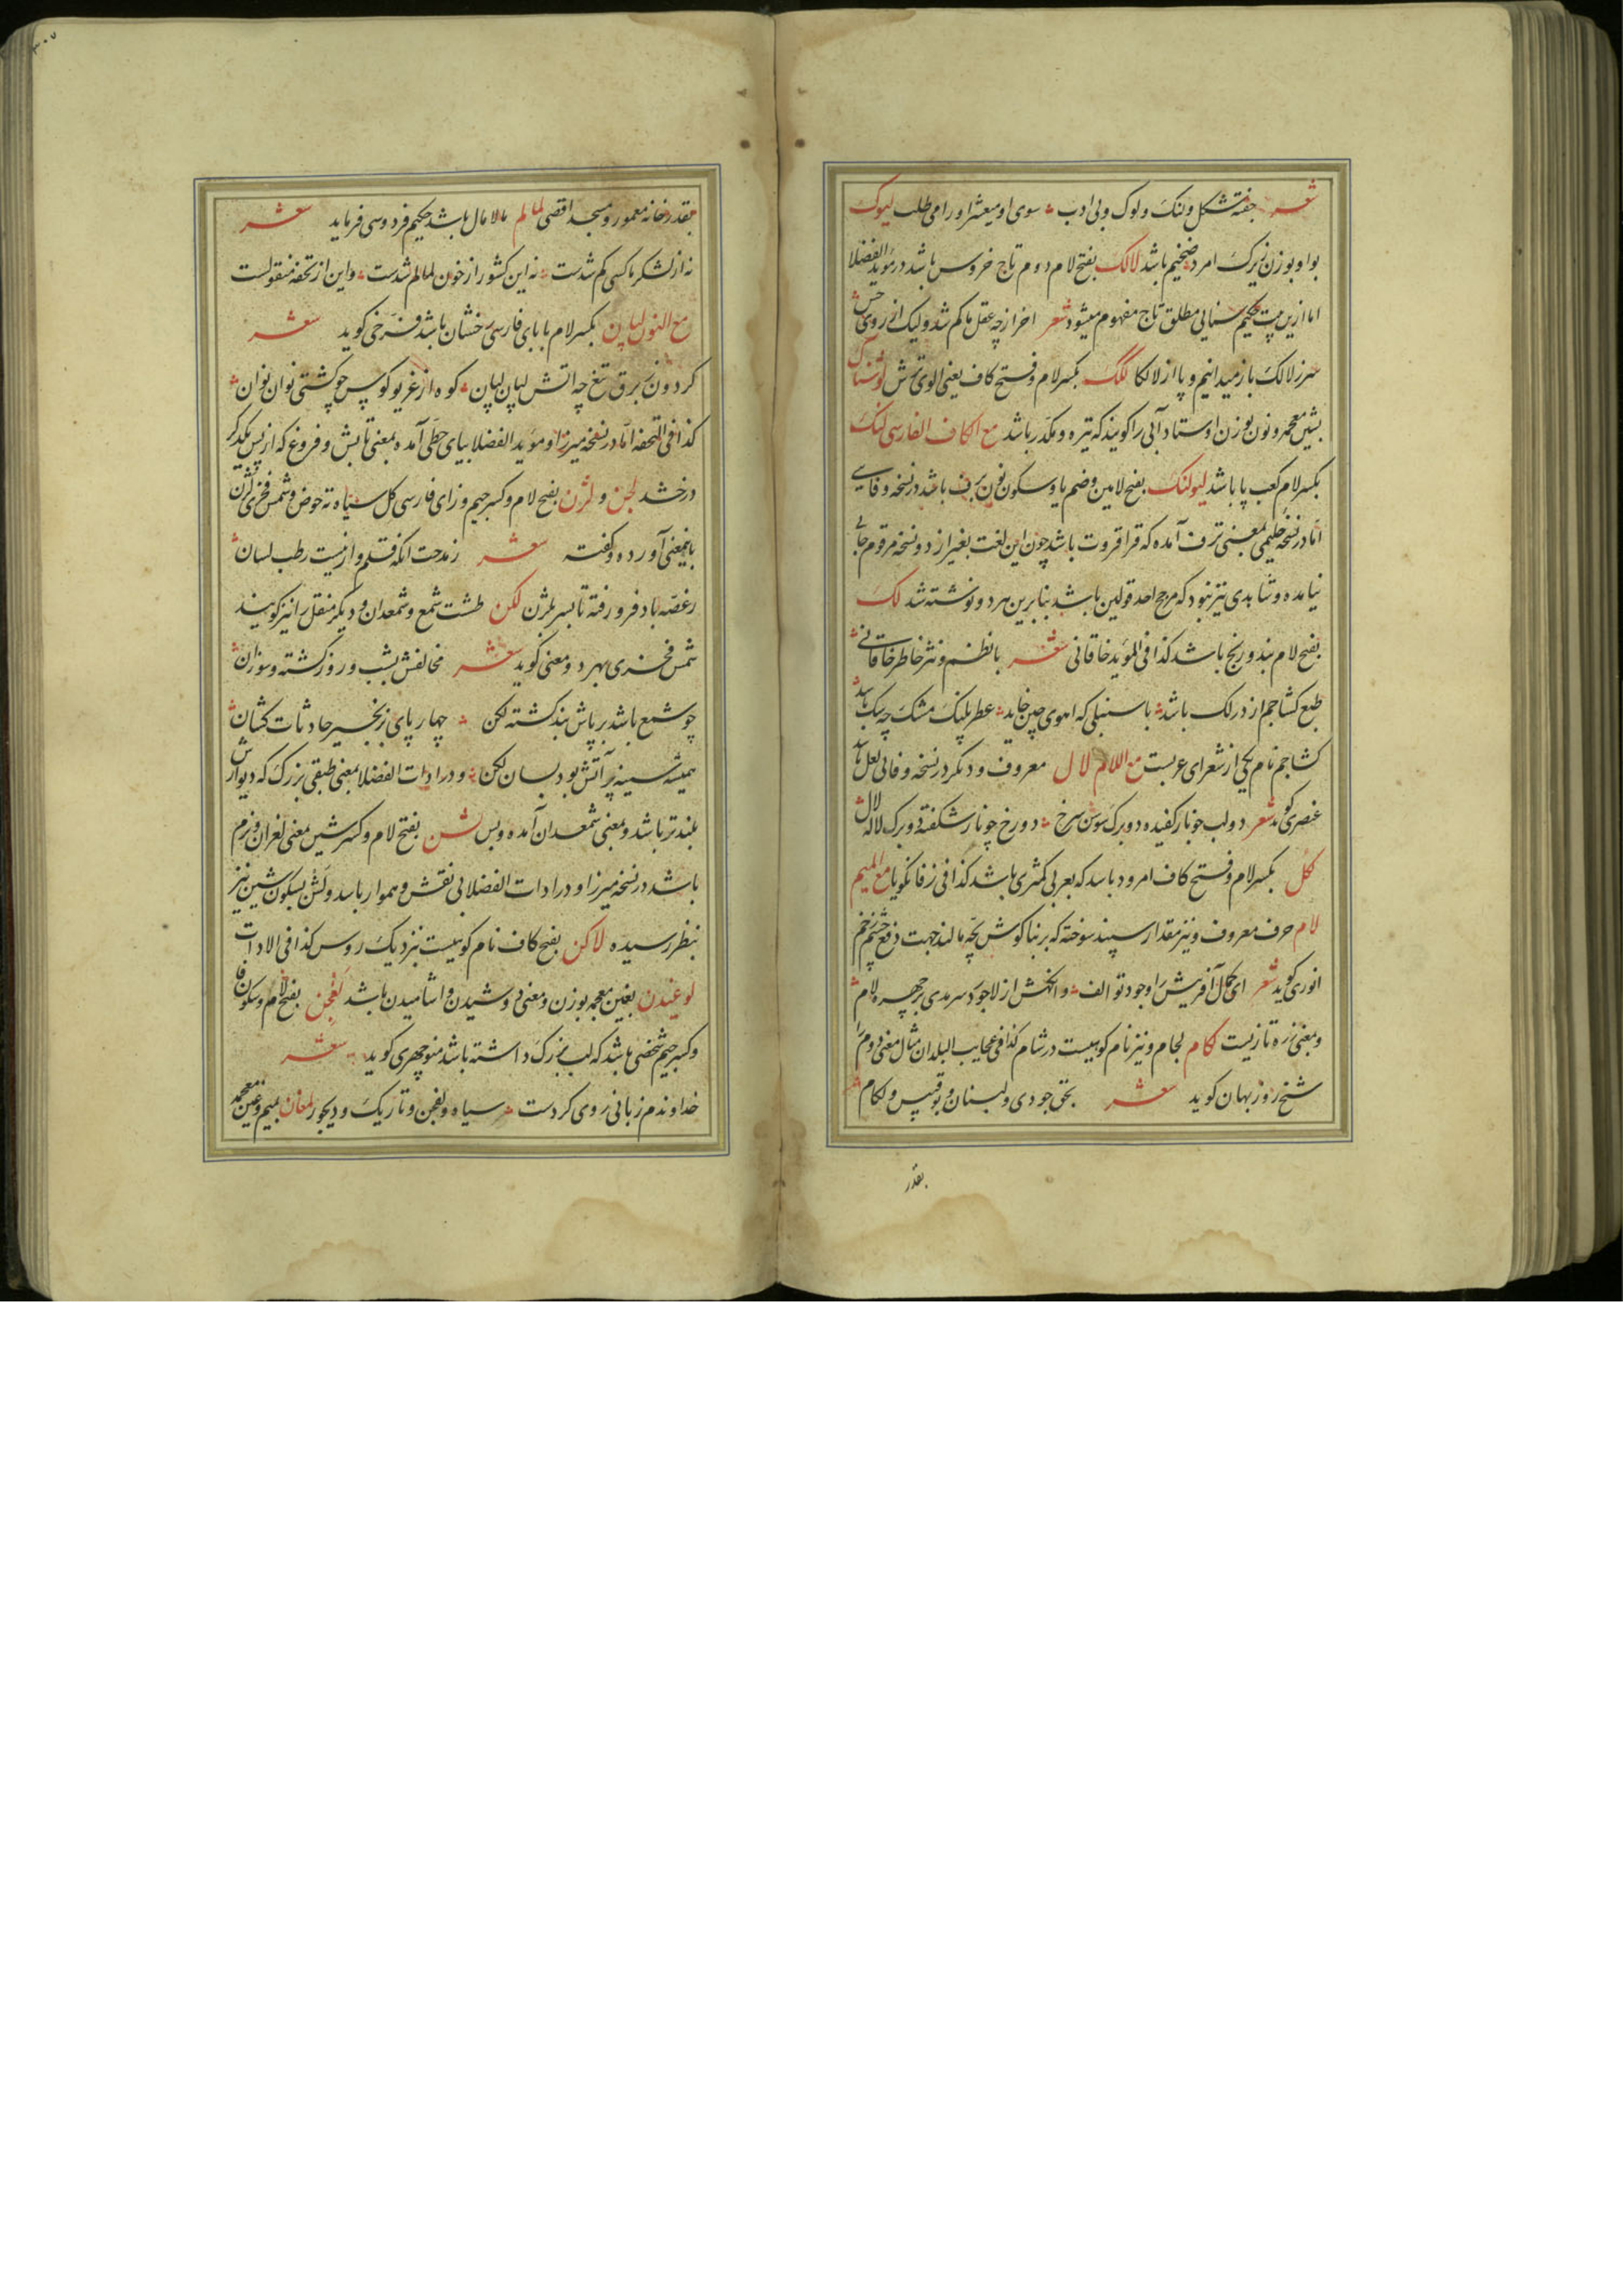 شعر جفته مشکل و لنک و لوک و بی ادب سوی او میغثر او را می طلب لیوک
بواو بوزن زیرک امرد ضخیم باشد لالک بفتح لام دوم تاج خروس باشد در مؤید الفضلا
اما ازین بیت حکیم سنائی مطلق تاج مفهوم میشود شعر اخر ازچه عقل ما کم شد ولیک از روی حس
سر ز لالک باز میدانیم و پا از لالکا لکک بکسر لام و فتح کاف یعنی الوی ترش لوشناک
بشین معجمه و نون بوزن اوستاد آبی را کویند که تیره و مکدر باشد مع الکاف الفارسی لنک
بکسر لام کعب پا باشد لیولنک بفتح لامین و ضم یا و سکون نون برف باشد در نسخه وفایی
اما در نسخه حلیمی بمعنی ترف آمده که قراقروت باشد چون این لغت بغیر از دو نسخه مرقوم جایی
نیامده و شاهدی نیز نبود که مرجح احد قولین باشد بنابرین هر دو نوشته شد لک
بفتح لام بند و رنج باشد کذا فی المؤید خاقانی شعر با نظم و نثر خاطر خاقانی
طبع کشاجم از در لک باشد با سنبلی که اهوی چین خاید عطر پلنک مشک چه سک باشد
کشاجم نام یکی از شعرای عربست مع اللام لال معروف و دیکر در نسخه وفائی لعل باشد
عنصری کوید شعر دو لب چو نار کفیده دو برک سوسن سرخ دو رخ چو نار شکفته دو برک لاله لال
لکل بکسر لام و فتح کاف امرود باشد که بعربی کمثری باشد کذا فی زفانکویا مع المیم
لام حرف معروف و نیز مقدار سپند سوخته که بر بناکوش بچه مالند جهت دفع چشم زخم
انوری کوید شعر ای کمال آفرینش را وجود تو الف وانکهش از لاجورد سرمدی بر چهره لام
و بمعنی زره تازیست لکام لجام و نیز نام کوهیست در شام کذا فی عجایب البلدان مثال معنی دوم را
شیخ روزبهان کوید شعر بحق جودی و لبنان و بوقبیس و لکام
بقدر
۳۰۷
بقدر خانه معمور و مسجد اقصی لمالم مالامال باشد حکیم فردوسی فرماید شعر
نه از لشکر ما کسی کم شدست نه این کشور از خون لمالم شدست و این از تحفه منقولست
مع النون لپان بکسر لام با بای فارسی رخشان باشد فرخی کوید شعر
کردون ز برق تیغ چه اتش لپان لپان کوه از غریو کوس چو کشتی نوان نوان
کذا فی التحفه اما در نسخه میرزا و مؤید الفضلا بیای حطی آمده بمعنی تابش و فروغ که از پس یکدکر
درخشد لجن و لژن بفتح لام و کسر جیم و زای فارسی کل سیاه ته حوض و شمس فخری لژن
باینمعنی آورده و کفته شعر ز مدحت انکه قلم وار نیست رطب لسان
ز غصه باد فرو رفته تا بسر بلژن لکن طشت شمع و شمعدان و دیکر منقل را نیز کویند
شمس فخری بهر دو معنی کوید شعر مخالفش بشب و روز کشته و سوزان
چو شمع باشد بر پاش بند کشته لکن چهار پای بزنجیر حادثات کشان
همیشه سینه پر آتش بود بسان لکن و در ادات الفضلا بمعنی طبقی بزرک که دیوارش
بلندتر باشد و بمعنی شمعدان آمده و بس لشن بفتح لام و کسر شین معنی لغزان و نرم
باشد در نسخه میرزا و در ادات الفضلا بی نقش و هموار باشد و لشن بسکون شین نیز
بنظر رسیده لاکن بفتح کاف نام کوهیست نزدیک روس کذا فی الادات
لوغیدن بغین معجمه بوزن و معنی دوشیدن و اشامیدن باشد لفجن بفتح لام و سکون فا
و کسر جیم شخصی باشد که لب بزرک داشته باشد منوچهری کوید شعر
خداوندم زبانی روی کردست سیاه و لفجن و تاریک و دیجور لمغان بمیم و غین معجمه